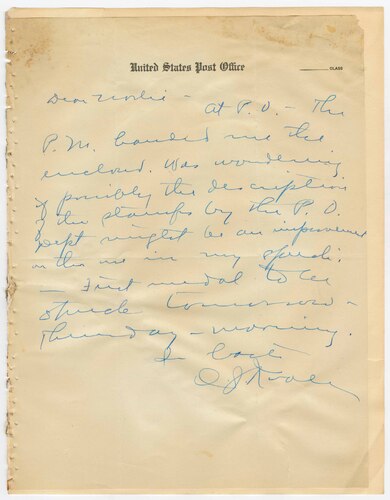 United States Post Office
CLASS
Dear - At P.O. - The
P.M. handed me the
enclosed. Was wondering
if possibly the description
of the stamps by the P.O.
Dept might be an improvement
on the one in my speech.
- First medal to be
struck tomorrow -
Thursday - morning.
In haste